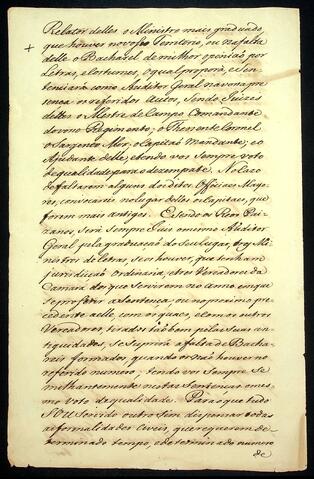 Relator delles o Ministro mais graduado,
que houver no vosso Territorio, ou na falta
delle o Bacharel de milhor opinião por
Letras, e costumes, o qual proporá, e Sen-
tenciará como Auditor Geral na vona pre-
zença os referidos Autos, Sendo Juizes
delles o Mestre de Campo Comandante
do vosso Regimento; o Thenente Coronel
o Sargento Mór, o Capitão Mandante; e o
Ajudante delle; e tendo vos Sempre voto
de qualidade para o dezempate. No Cazo
de faltarem alguns dos ditos Officiaes Mayo-
res, convocareis no lugar delles os Capitaes, que
forem mais antigos. E Sendo os Reos Pai-
zanos, Será Sempre Juis o mesmo Auditor
Geral pela graduação do Seu Lugar, dos Mi-
nistros de Letras, se os houver, que tenham
jurisdição Ordinaria, e tres Vereadores da
Camara dos que Servirem no anno, em que
Se proferir a Sentença, ou no proximo pre-
cedente a elle, com os quaes, e com os outros
Vereadores, tirados tãobem pelas Suas an-
tiguidades, Se Suprirá a falta de Bacha-
reis formados, quando os não houver no
referido numero; tendo vos Sempre Se-
milhantemente nestas Sentenças o mes-
mo voto de qualidade. Para o que tudo
Sou Servido outro Sim dispensar todas
as formalidades Civeis, que requerem de-
terminado tempo, e determinado numero
de